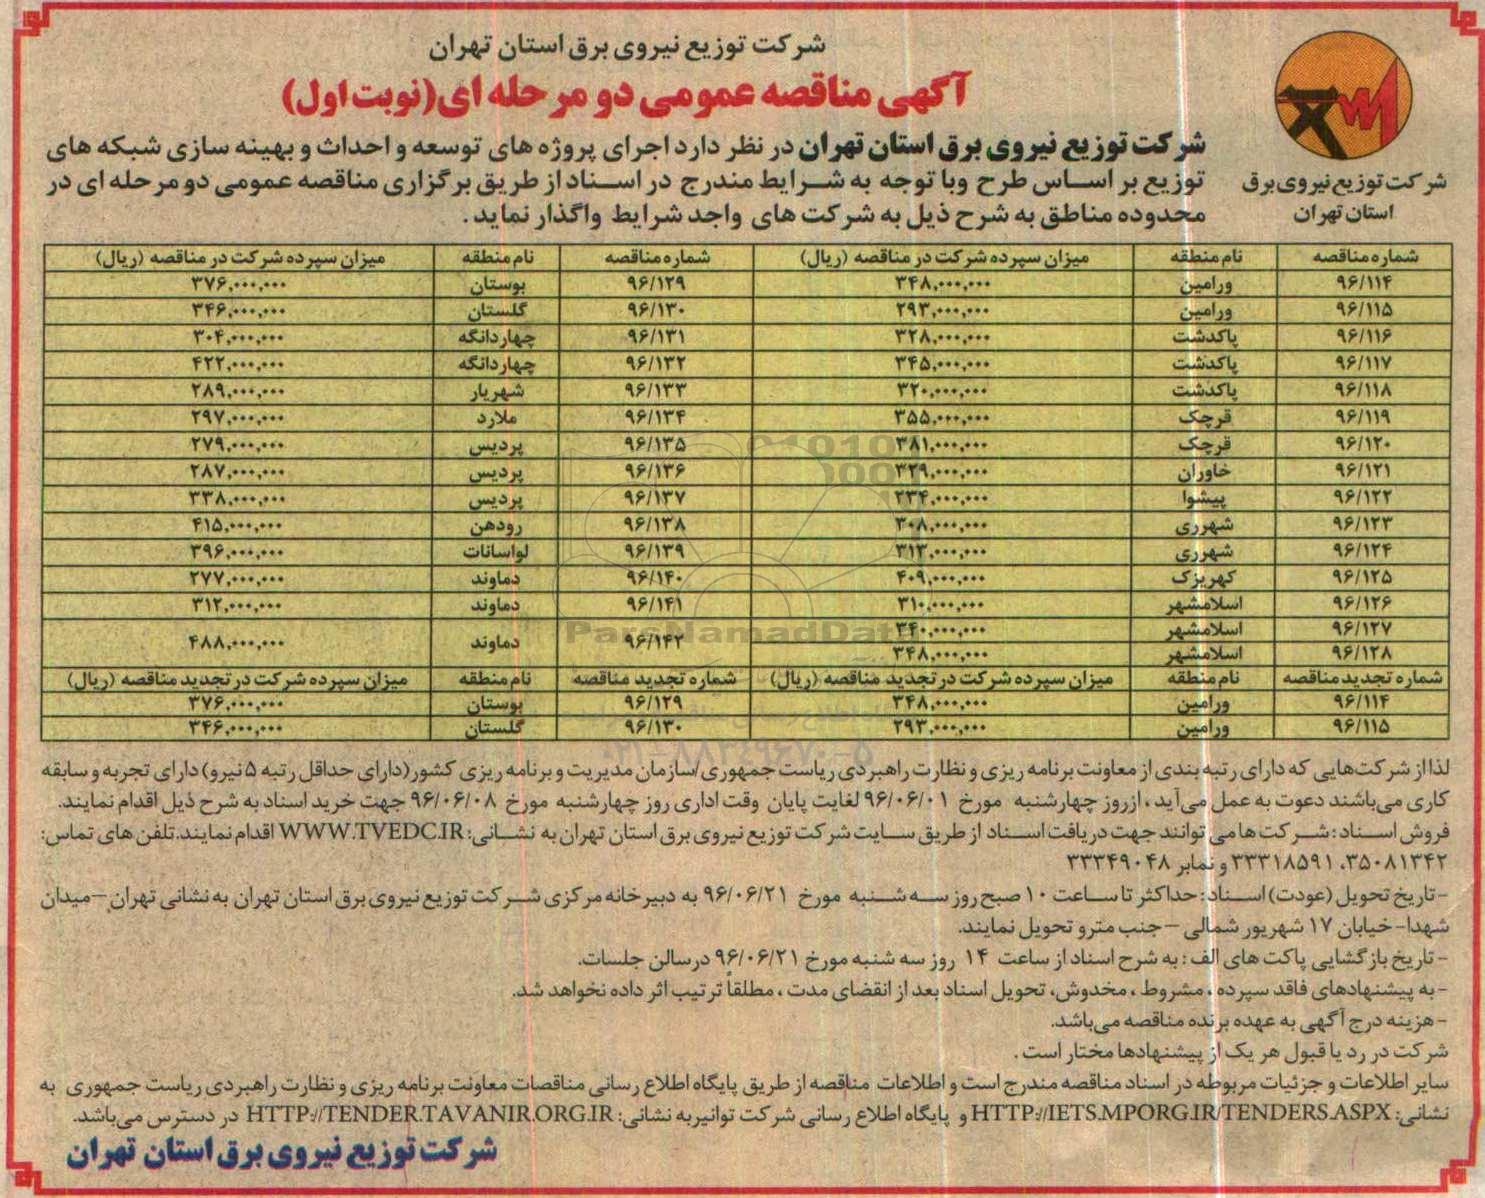 شرکت توزیع نیروی برق استان تهران
آگهی مناقصه عمومی دو مرحله ای(نوبت اول)
شرکت توزیع نیروی برق
استان تهران
شرکت توزیع نیروی برق استان تهران در نظر دارد اجرای پروژه های توسعه و احداث و بهینه سازی شبکه های
توزیع بر اساس طرح وبا توجه به شرایط مندرج در اسناد از طریق برگزاری مناقصه عمومی دو مرحله ای در
محدوده مناطق به شرح ذیل به شرکت های واجد شرایط واگذار نماید.
شماره مناقصه نام منطقه میزان سپرده شرکت در مناقصه (ریال) شماره مناقصه نام منطقه میزان سپرده شرکت در مناقصه (ریال)
۹۶/۱۱۴ ورامین ۳۴۸,۰۰۰,۰۰۰ ۹۶/۱۲۹ بوستان ۳۷۶,۰۰۰,۰۰۰
۹۶/۱۱۵ ورامین ۲۹۳,۰۰۰,۰۰۰ ۹۶/۱۳۰ گلستان ۳۴۶,۰۰۰,۰۰۰
۹۶/۱۱۶ پاکدشت ۳۲۸,۰۰۰,۰۰۰ ۹۶/۱۳۱ چهاردانگه ۳۰۴,۰۰۰,۰۰۰
۹۶/۱۱۷ پاکدشت ۳۴۵,۰۰۰,۰۰۰ ۹۶/۱۳۲ چهاردانگه ۴۲۲,۰۰۰,۰۰۰
۹۶/۱۱۸ پاکدشت ۳۲۰,۰۰۰,۰۰۰ ۹۶/۱۳۳ شهریار ۲۸۹,۰۰۰,۰۰۰
۹۶/۱۱۹ قرچک ۳۵۵,۰۰۰,۰۰۰ ۹۶/۱۳۴ ملارد ۲۹۷,۰۰۰,۰۰۰
۹۶/۱۲۰ قرچک ۳۸۱,۰۰۰,۰۰۰ ۹۶/۱۳۵ پردیس ۲۷۹,۰۰۰,۰۰۰
۹۶/۱۲۱ خاوران ۳۲۹,۰۰۰,۰۰۰ ۹۶/۱۳۶ پردیس ۲۸۷,۰۰۰,۰۰۰
۹۶/۱۲۲ پیشوا ۲۳۴,۰۰۰,۰۰۰ ۹۶/۱۳۷ پردیس ۳۳۸,۰۰۰,۰۰۰
۹۶/۱۲۳ شهرری ۳۰۸,۰۰۰,۰۰۰ ۹۶/۱۳۸ رودهن ۴۱۵,۰۰۰,۰۰۰
۹۶/۱۲۴ شهرری ۳۱۳,۰۰۰,۰۰۰ ۹۶/۱۳۹ لواسانات ۳۹۶,۰۰۰,۰۰۰
۹۶/۱۲۵ کهریزک ۴۰۹,۰۰۰,۰۰۰ ۹۶/۱۴۰ دماوند ۲۷۷,۰۰۰,۰۰۰
۹۶/۱۲۶ اسلامشهر ۳۱۰,۰۰۰,۰۰۰ ۹۶/۱۴۱ دماوند ۳۱۲,۰۰۰,۰۰۰
۹۶/۱۲۷ اسلامشهر ۳۴۰,۰۰۰,۰۰۰ ۹۶/۱۴۲ دماوند ۴۸۸,۰۰۰,۰۰۰
۹۶/۱۲۸ اسلامشهر ۳۴۸,۰۰۰,۰۰۰
شماره تجدید مناقصه نام منطقه میزان سپرده شرکت در تجدید مناقصه (ریال) شماره تجدید مناقصه نام منطقه میزان سپرده شرکت در تجدید مناقصه (ریال)
۹۶/۱۱۴ ورامین ۳۴۸,۰۰۰,۰۰۰ ۹۶/۱۲۹ بوستان ۳۷۶,۰۰۰,۰۰۰
۹۶/۱۱۵ ورامین ۲۹۳,۰۰۰,۰۰۰ ۹۶/۱۳۰ گلستان ۳۴۶,۰۰۰,۰۰۰
ParsNamadData
۰۲۱-۸۸۳۴۹۶۷۰-۵
لذا از شرکت‌هایی که دارای رتبه بندی از معاونت برنامه ریزی و نظارت راهبردی ریاست جمهوری /سازمان مدیریت و برنامه ریزی کشور(دارای حداقل رتبه ۵ نیرو) دارای تجربه و سابقه
کاری می‌باشند دعوت به عمل می‌آید، ازروز چهارشنبه مورخ ۹۶/۰۶/۰۱ لغایت پایان وقت اداری روز چهارشنبه مورخ ۹۶/۰۶/۰۸ جهت خرید اسناد به شرح ذیل اقدام نمایند.
فروش اسناد: شرکت ها می توانند جهت دریافت اسناد از طریق سایت شرکت توزیع نیروی برق استان تهران به نشانی: WWW.TVEDC.IR اقدام نمایند.تلفن های تماس:
۳۵۰۸۱۳۴۲، ۳۳۳۱۸۵۹۱ و نمابر ۳۳۳۴۹۰۴۸
-تاریخ تحویل (عودت) اسناد: حداکثر تا ساعت ۱۰ صبح روز سه شنبه مورخ ۹۶/۰۶/۲۱ به دبیرخانه مرکزی شرکت توزیع نیروی برق استان تهران به نشانی تهران –میدان
شهدا- خیابان ۱۷ شهریور شمالی – جنب مترو تحویل نمایند.
-تاریخ بازگشایی پاکت های الف: به شرح اسناد از ساعت ۱۴ روز سه شنبه مورخ ۹۶/۰۶/۲۱ در سالن جلسات.
-به پیشنهادهای فاقد سپرده، مشروط، مخدوش، تحویل اسناد بعد از انقضای مدت، مطلقاً ترتیب اثر داده نخواهد شد.
-هزینه درج آگهی به عهده برنده مناقصه می‌باشد.
شرکت در رد یا قبول هر یک از پیشنهادها مختار است.
سایر اطلاعات و جزئیات مربوطه در اسناد مناقصه مندرج است و اطلاعات مناقصه از طریق پایگاه اطلاع رسانی مناقصات معاونت برنامه ریزی و نظارت راهبردی ریاست جمهوری به
نشانی: HTTP://IETS.MPORG.IR/TENDERS.ASPX و پایگاه اطلاع رسانی شرکت توانیر به نشانی: HTTP://TENDER.TAVANIR.ORG.IR در دسترس می‌باشد.
شرکت توزیع نیروی برق استان تهران